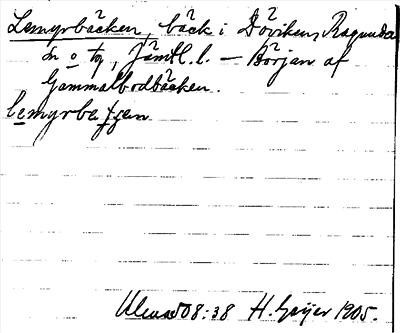 Lemyrbäcken, bäck i Döviken, Ragunda
sn o tg, Jämtl. l. — Början af
Gammalbodbäcken.
lemyrbe
08:38 H. Geijer 1905.